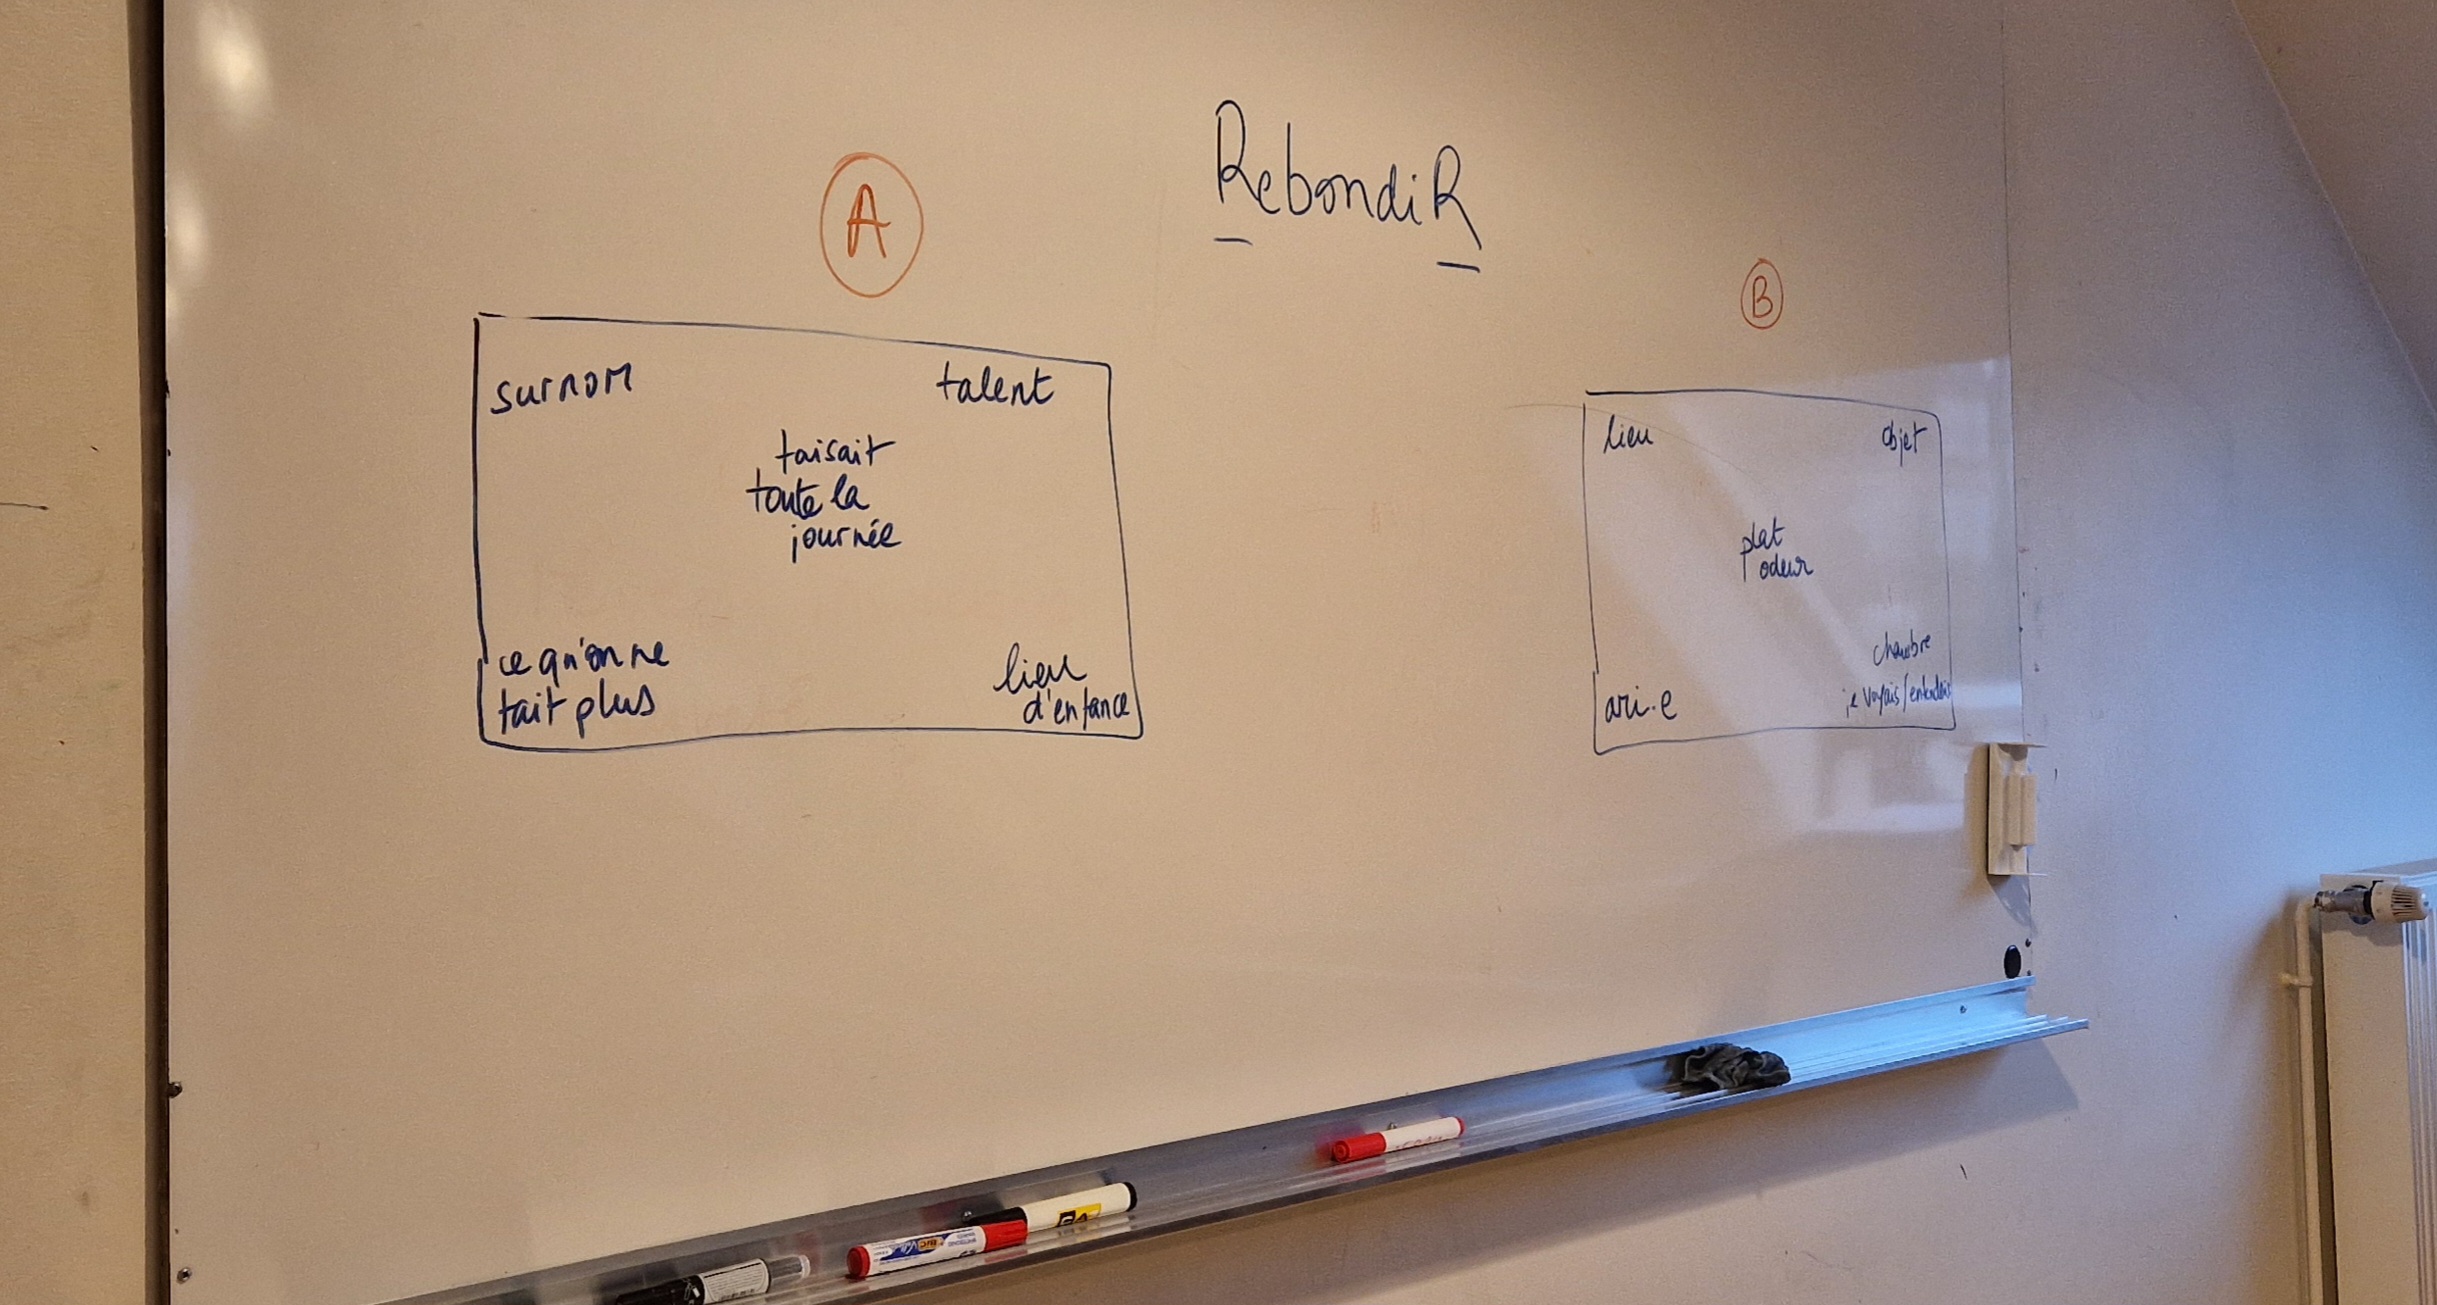 RebondiR
A
surnom
talent
faisait
toute la
journée
ce qu'on ne
fait plus
lieu
d'enfance
B
lieu
objet
plat
odeur
ami·e
chambre
je voyais/entendais
BIC